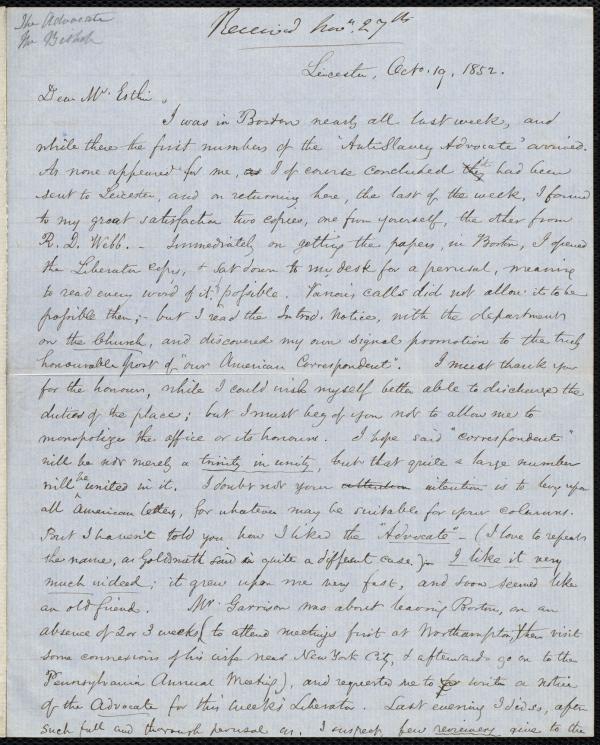 The Advocate
Mr Estlin
Received Nov. 27th
Leicester, Octo. 19, 1852.
Dear Mr. Estlin,
I was in Boston nearly all last week, and
while there the first numbers of the "Anti Slavery Advocate" arrived.
As none appeared for me, as I of course concluded they had been
sent to Leicester, and on returning here, the last of the week, I found
to my great satisfaction two copies, one from yourself, the other from
R. D. Webb. – Immediately on getting the papers, in Boston, I opened
the Liberator copy, & sat down to my desk for a perusal, meaning
to read every word of it, if possible. Various calls did not allow it to be
possible then; – but I read the Introd. Notice, with the department
on the Church, and discovered my own signal promotion to the truly
honourable post of "our American Correspondent". I must thank you
for the honour, while I could wish myself better able to discharge the
duties of the place; but I must beg of you not to allow me to
monopolize the office or its honours. I hope said "correspondent"
will be not merely a trinity in unity, but that quite a large number
will be united in it. I doubt not your attention intention is to lay upon
all American letters, for whatever may be suitable for your columns.
But I haven't told you how I liked the "Advocate" – (I love to repeat
the name, as Goldsmith said in quite a different case.) – I like it very
much indeed; it grew upon me very fast, and soon seemed like
an old friend. Mr. Garrison was about leaving Boston, on an
absence of 2 or 3 weeks (to attend meetings first at Northampton, then visit
some connexions of his wife near New York City, & afterwards go on to the
Pennsylvania Annual Meeting), and requested me to write a notice
of the Advocate for this week's Liberator. Last evening I did so, after
such full and thorough perusal as, I suspect, few reviewers give to the